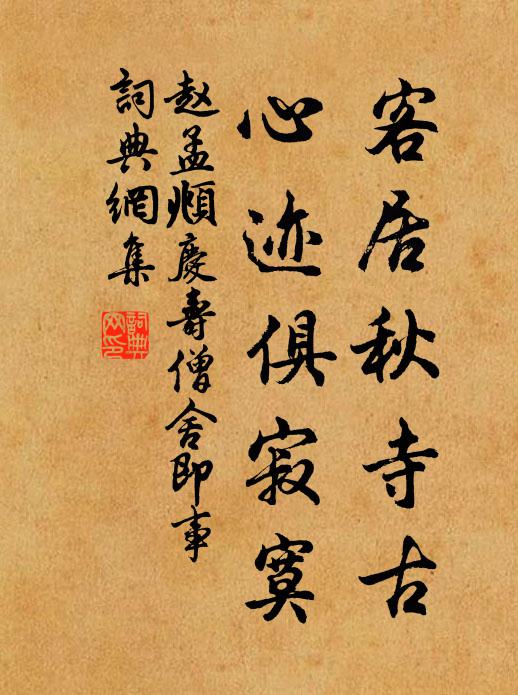 客居秋寺古
心迹俱寂寞
赵孟頫慶壽僧舍即事
詞典網集
詞典網印